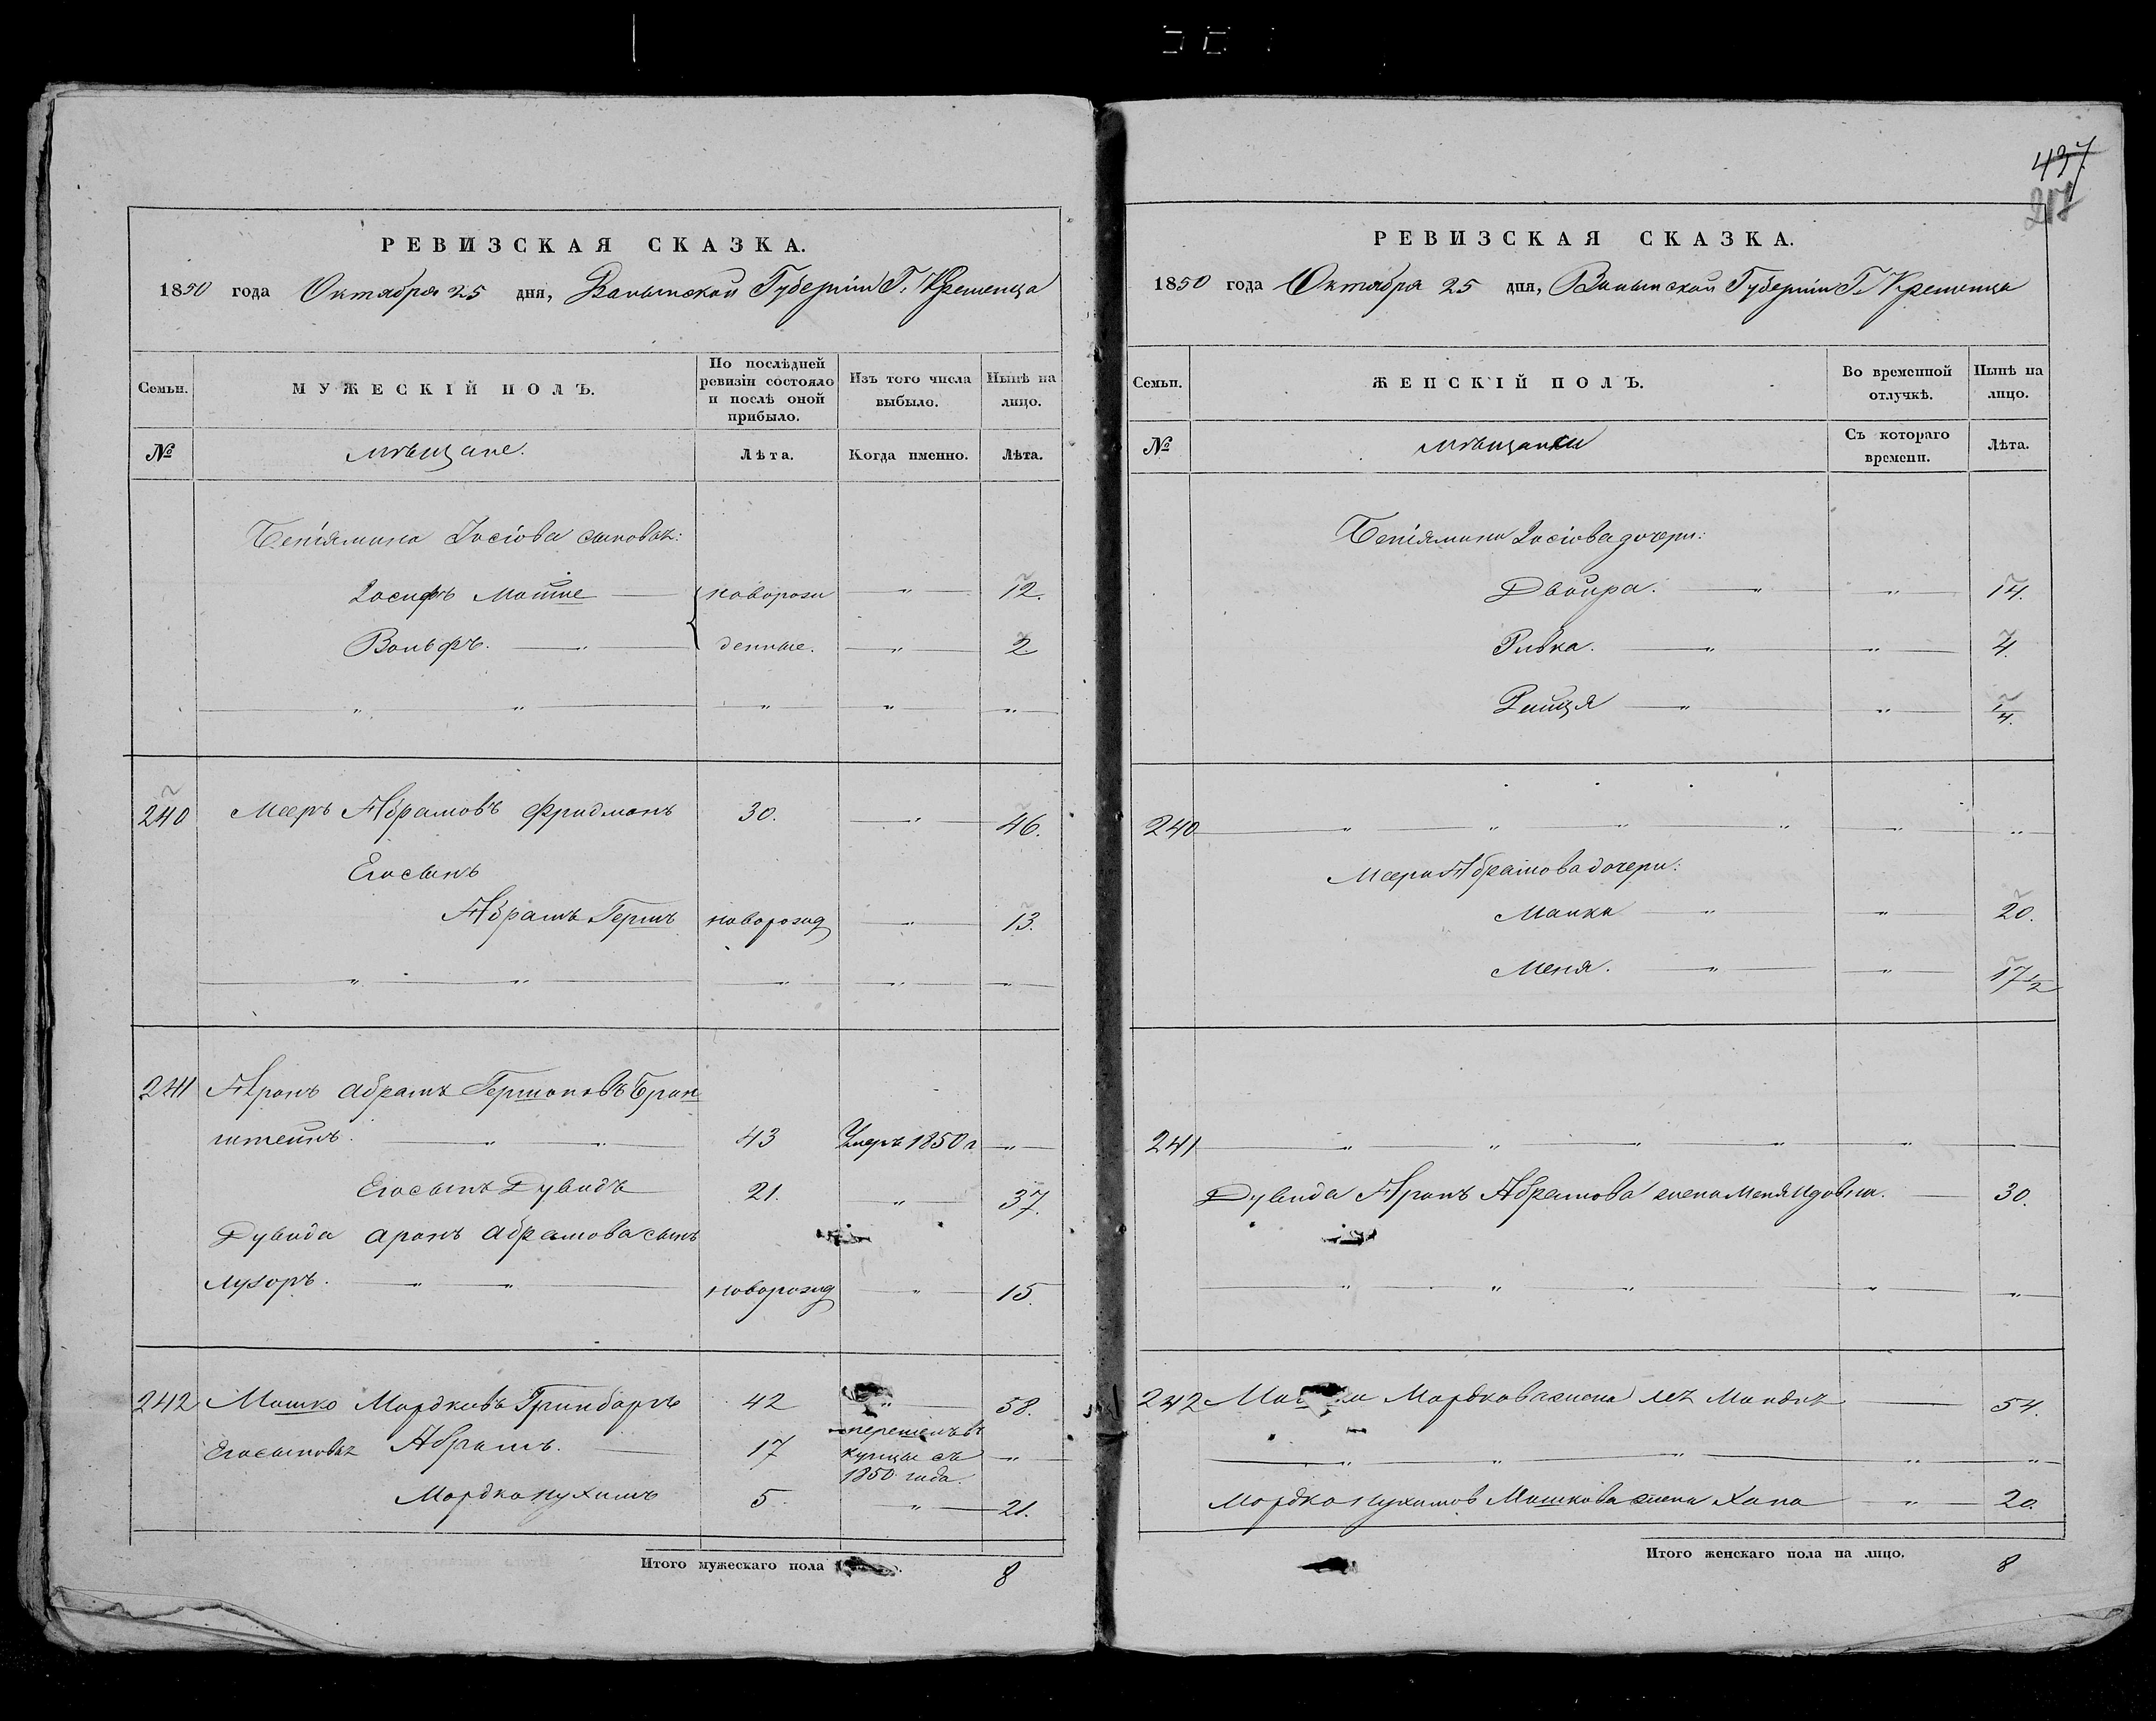 РЕВИЗСКАЯ СКАЗКА.
1850 года Октября 25 дня, Волынской Губерніи Г. Кременца
Семьи.
МУЖЕСКІЙ ПОЛЪ.
По послѣдней
ревизіи состояло
и послѣ оной
прибыло.
Изъ того числа
выбыло.
Нынѣ на
лицо.
№
мѣщане.
Лѣта.
Когда именно.
Лѣта.
Беніямина Іосіова сыновья:
Іосифъ Мошие новорож 12.
Вольфъ. денные. 2
240 Мееръ Абрамовъ Фридманъ 30. 46.
Его сынъ
Абрамъ Гершъ новорожд 13.
241 Аронъ Абрамъ Гершоновъ Брон
штейнъ. 43 Умеръ 1850 г
Его сынъ Дувидъ 21. 37.
Дувида Аронъ Абрамова сынъ
Лузоръ. новорожд 15.
242 Мошко Мордковъ Гринбаргъ 42 58.
Его сыновья Абрамъ. 17 перешелъ въ
купцы съ
1850 года.
Мордко Нухимъ 5. 21.
Итого мужескаго пола 8
437
217
РЕВИЗСКАЯ СКАЗКА.
1850 года Октября 25 дня, Волынской Губерніи Г. Кременца
Семьи.
ЖЕНСКІЙ ПОЛЪ.
Во временной
отлучкѣ.
Нынѣ на
лицо.
№
мѣщанки
Съ котораго
времени.
Лѣта.
Беніямина Іосіова дочери:
Двойра. 14.
Ривка. 4.
Рейзя 1/4.
240
Меера Абрамова дочери:
Малка 20.
Меня. 17 1/2
241
Дувида Аронъ Абрамова жена Меня Идовна. 30.
242 Мошка Мордкова жена Лея 54.
Мордко Нухимов Мошкова жена Хана 20.
Итого женскаго пола на лицо. 8